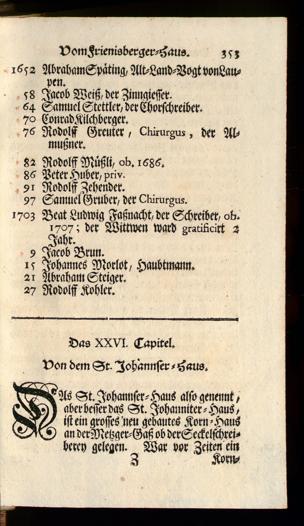 Vom Frienisberger-Haus. 353
1652 Abraham Späting, Alt-Land-Vogt von Lau-
pen.
58 Jacob Weiß, der Zinngiesser.
64 Samuel Stettler, der Chorschreiber.
70 Conrad Kilchberger.
76 Rodolff Greuter, Chirurgus, der Al-
mußner.
82 Rodolff Müßli, ob. 1686.
86 Peter Huber, priv.
91 Rodolff Zehender.
97 Samuel Gruber, der Chirurgus.
1703 Beat Ludwig Faßnacht, der Schreiber, ob.
1707; der Wittwen ward gratificirt 2
Jahr.
9 Jacob Brun.
15 Johannes Morlot, Haubtmann.
21 Abraham Steiger.
27 Rodolff Kohler.
Das XXVI. Capitel.
Von dem St. Johannser-Haus.
DAs St. Johannser-Haus also genennt,
aber besser das St. Johanniter-Haus,
ist ein grosses neu gebautes Korn-Haus
an der Metzger-Gaß ob der Seckelschrei-
berey gelegen. War vor Zeiten ein
Z Korn-